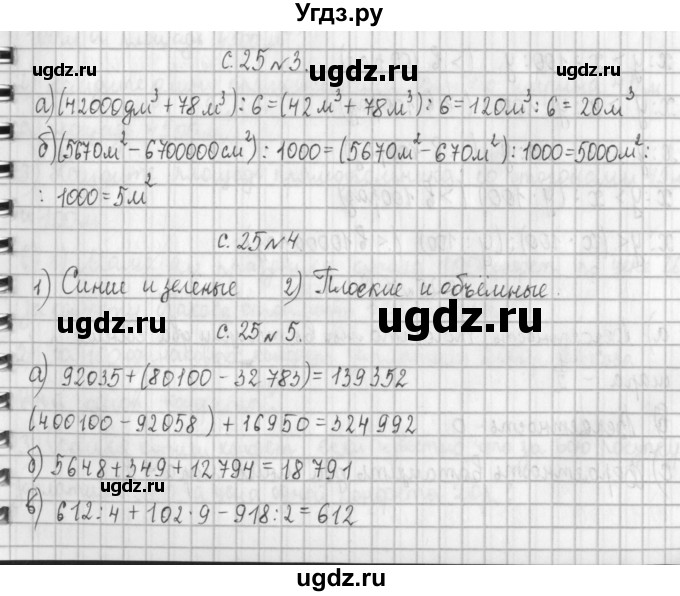 Угдз.ру
с. 25 №3.
ugdz.ru ugdz.ru
а) (42000дм³ + 78м³) : 6 = (42м³ + 78м³) : 6 = 120м³ : 6 = 20м³
б) (5670м² - 6700000см²) : 1000 = (5670м² - 670м²) : 1000 = 5000м² :
: 1000 = 5м²
ugdz.ru ugdz.ru
с. 25 №4
1) Синие и зеленые 2) Плоские и объёмные.
ugdz.ru ugdz.ru
с. 25 №5.
а) 92035 + (80100 - 32783) = 139352
ugdz.ru
(400100 - 92058) + 16950 = 324992
б) 5648 + 349 + 12794 = 18791
ugdz.ru
в) 612 : 4 + 102 · 9 - 918 : 2 = 612
ugdz.ru
ugdz.ru